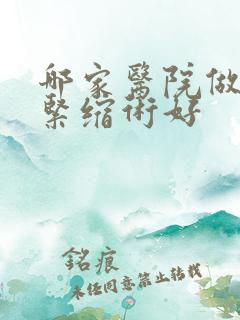 哪家醫院做
緊缩術好
銘痕
未经同意禁止转载